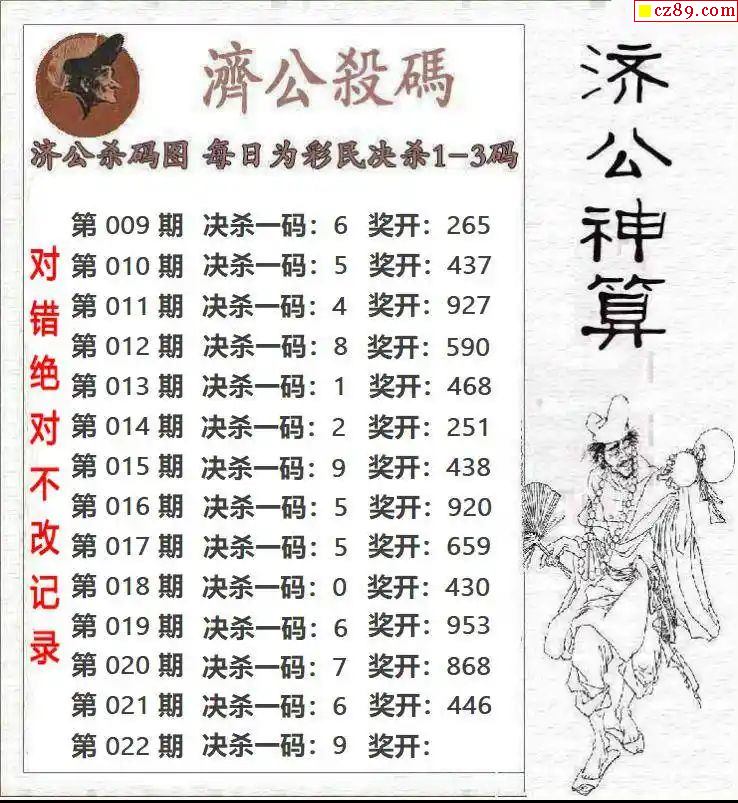 cz89.com
濟公殺碼
济公杀码图 每日为彩民决杀1-3码
第 009 期 决杀一码：6 奖开：265
第 010 期 决杀一码：5 奖开：437
第 011 期 决杀一码：4 奖开：927
第 012 期 决杀一码：8 奖开：590
第 013 期 决杀一码：1 奖开：468
第 014 期 决杀一码：2 奖开：251
第 015 期 决杀一码：9 奖开：438
第 016 期 决杀一码：5 奖开：920
第 017 期 决杀一码：5 奖开：659
第 018 期 决杀一码：0 奖开：430
第 019 期 决杀一码：6 奖开：953
第 020 期 决杀一码：7 奖开：868
第 021 期 决杀一码：6 奖开：446
第 022 期 决杀一码：9 奖开：
对错绝对不改记录
济公神算